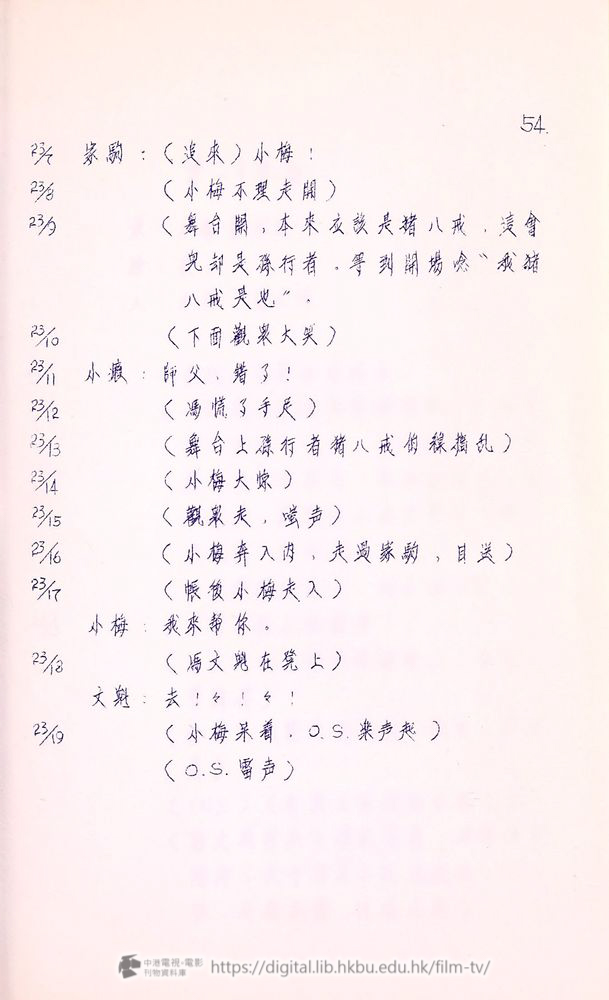 54.
23/7 家駒：（追來）小梅！
23/8 （小梅不理走開）
23/9 （舞台開，本來应該是猪八戒，這會
兒却是孫行者。等到開場唸“我猪
八戒是也”。
23/10 （下面觀衆大笑）
23/11 小渡：師父，錯了！
23/12 （馮慌了手足）
23/13 （舞台上孫行者猪八戒的線搞乱）
23/14 （小梅大惊）
23/15 （觀衆走，嘘声）
23/16 （小梅奔入内，走過家駒，目送）
23/17 （帳後小梅走入）
小梅：我來帮你。
23/18 （馮文魁在凳上）
文魁：去！々！々！
23/19 （小梅呆着，O.S.樂声起）
（O.S.雷声）
中港電視•電影
刊物資料庫
https://digital.lib.hkbu.edu.hk/film-tv/